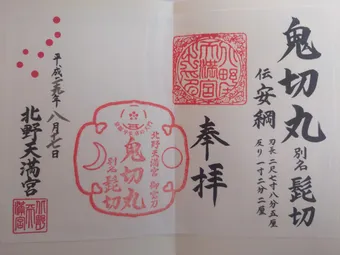 鬼切丸 別名 髭切
伝 安綱
刃長 二尺七寸八分五厘
反り 一寸二分二厘
北野天満宮
奉拝
北野天満宮 御宝刀
鬼切丸
別名 髭切
平成二九年 八月七日
北野天満宮